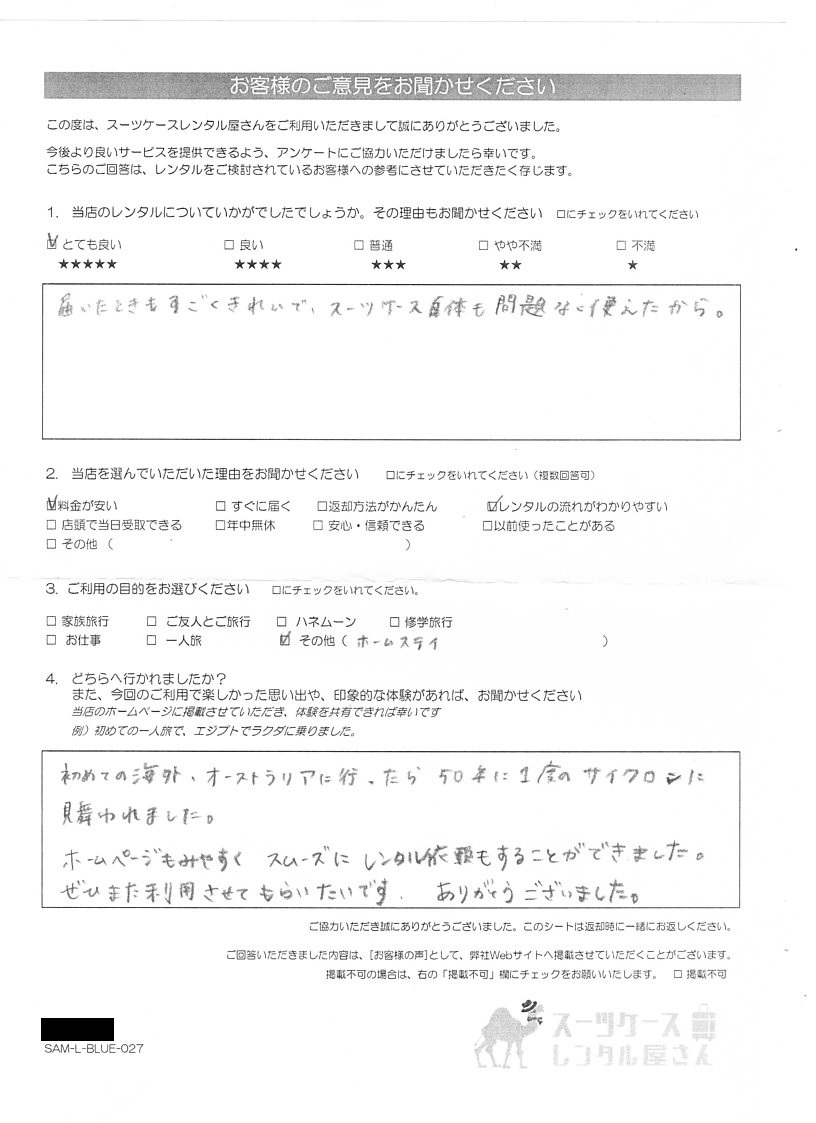 お客様のご意見をお聞かせください
この度は、スーツケースレンタル屋さんをご利用いただきまして誠にありがとうございました。
今後より良いサービスを提供できるよう、アンケートにご協力いただけましたら幸いです。
こちらのご回答は、レンタルをご検討されているお客様への参考にさせていただきたく存じます。
1. 当店のレンタルについていかがでしたでしょうか。その理由もお聞かせください □にチェックをいれてください
☑ とても良い □ 良い □ 普通 □ やや不満 □ 不満
★★★★★ ★★★★ ★★★ ★★ ★
届いたときもすごくきれいで、スーツケース自体も問題なく使えたから。
2. 当店を選んでいただいた理由をお聞かせください □にチェックをいれてください（複数回答可）
☑料金が安い □ すぐに届く □返却方法がかんたん ☑レンタルの流れがわかりやすい
□ 店頭で当日受取できる □年中無休 □ 安心・信頼できる □以前使ったことがある
□ その他（ ）
3. ご利用の目的をお選びください □にチェックをいれてください。
□ 家族旅行 □ ご友人とご旅行 □ ハネムーン □ 修学旅行
□ お仕事 □ 一人旅 ☑ その他（ ホームステイ ）
4. どちらへ行かれましたか？
また、今回のご利用で楽しかった思い出や、印象的な体験があれば、お聞かせください
当店のホームページに掲載させていただき、体験を共有できれば幸いです
例）初めての一人旅で、エジプトでラクダに乗りました。
初めての海外、オーストラリアに行ったら 50年に1度のサイクロンに
見舞われました。
ホームページもみやすく スムーズに レンタル依頼もすることができました。
ぜひまた利用させてもらいたいです。 ありがとうございました。
ご協力いただき誠にありがとうございました。このシートは返却時に一緒にお返しください。
ご回答いただきました内容は、[お客様の声]として、弊社Webサイトへ掲載させていただくことがございます。
掲載不可の場合は、右の「掲載不可」欄にチェックをお願いいたします。 □ 掲載不可
SAM-L-BLUE-027
スーツケース
レンタル屋さん